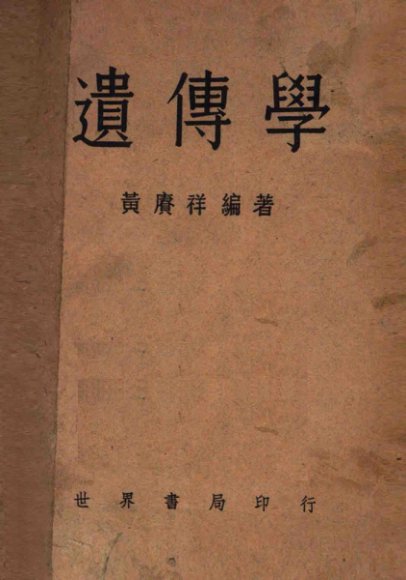 遺傳學
黃賡祥編著
世界書局印行